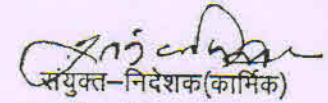 संयुक्त-निदेशक(कार्मिक)